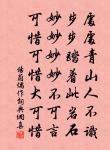 處處青山人不識
步步踏著此岩石
妙妙妙妙不可言
可惜可惜大可惜
偶作詞典網集